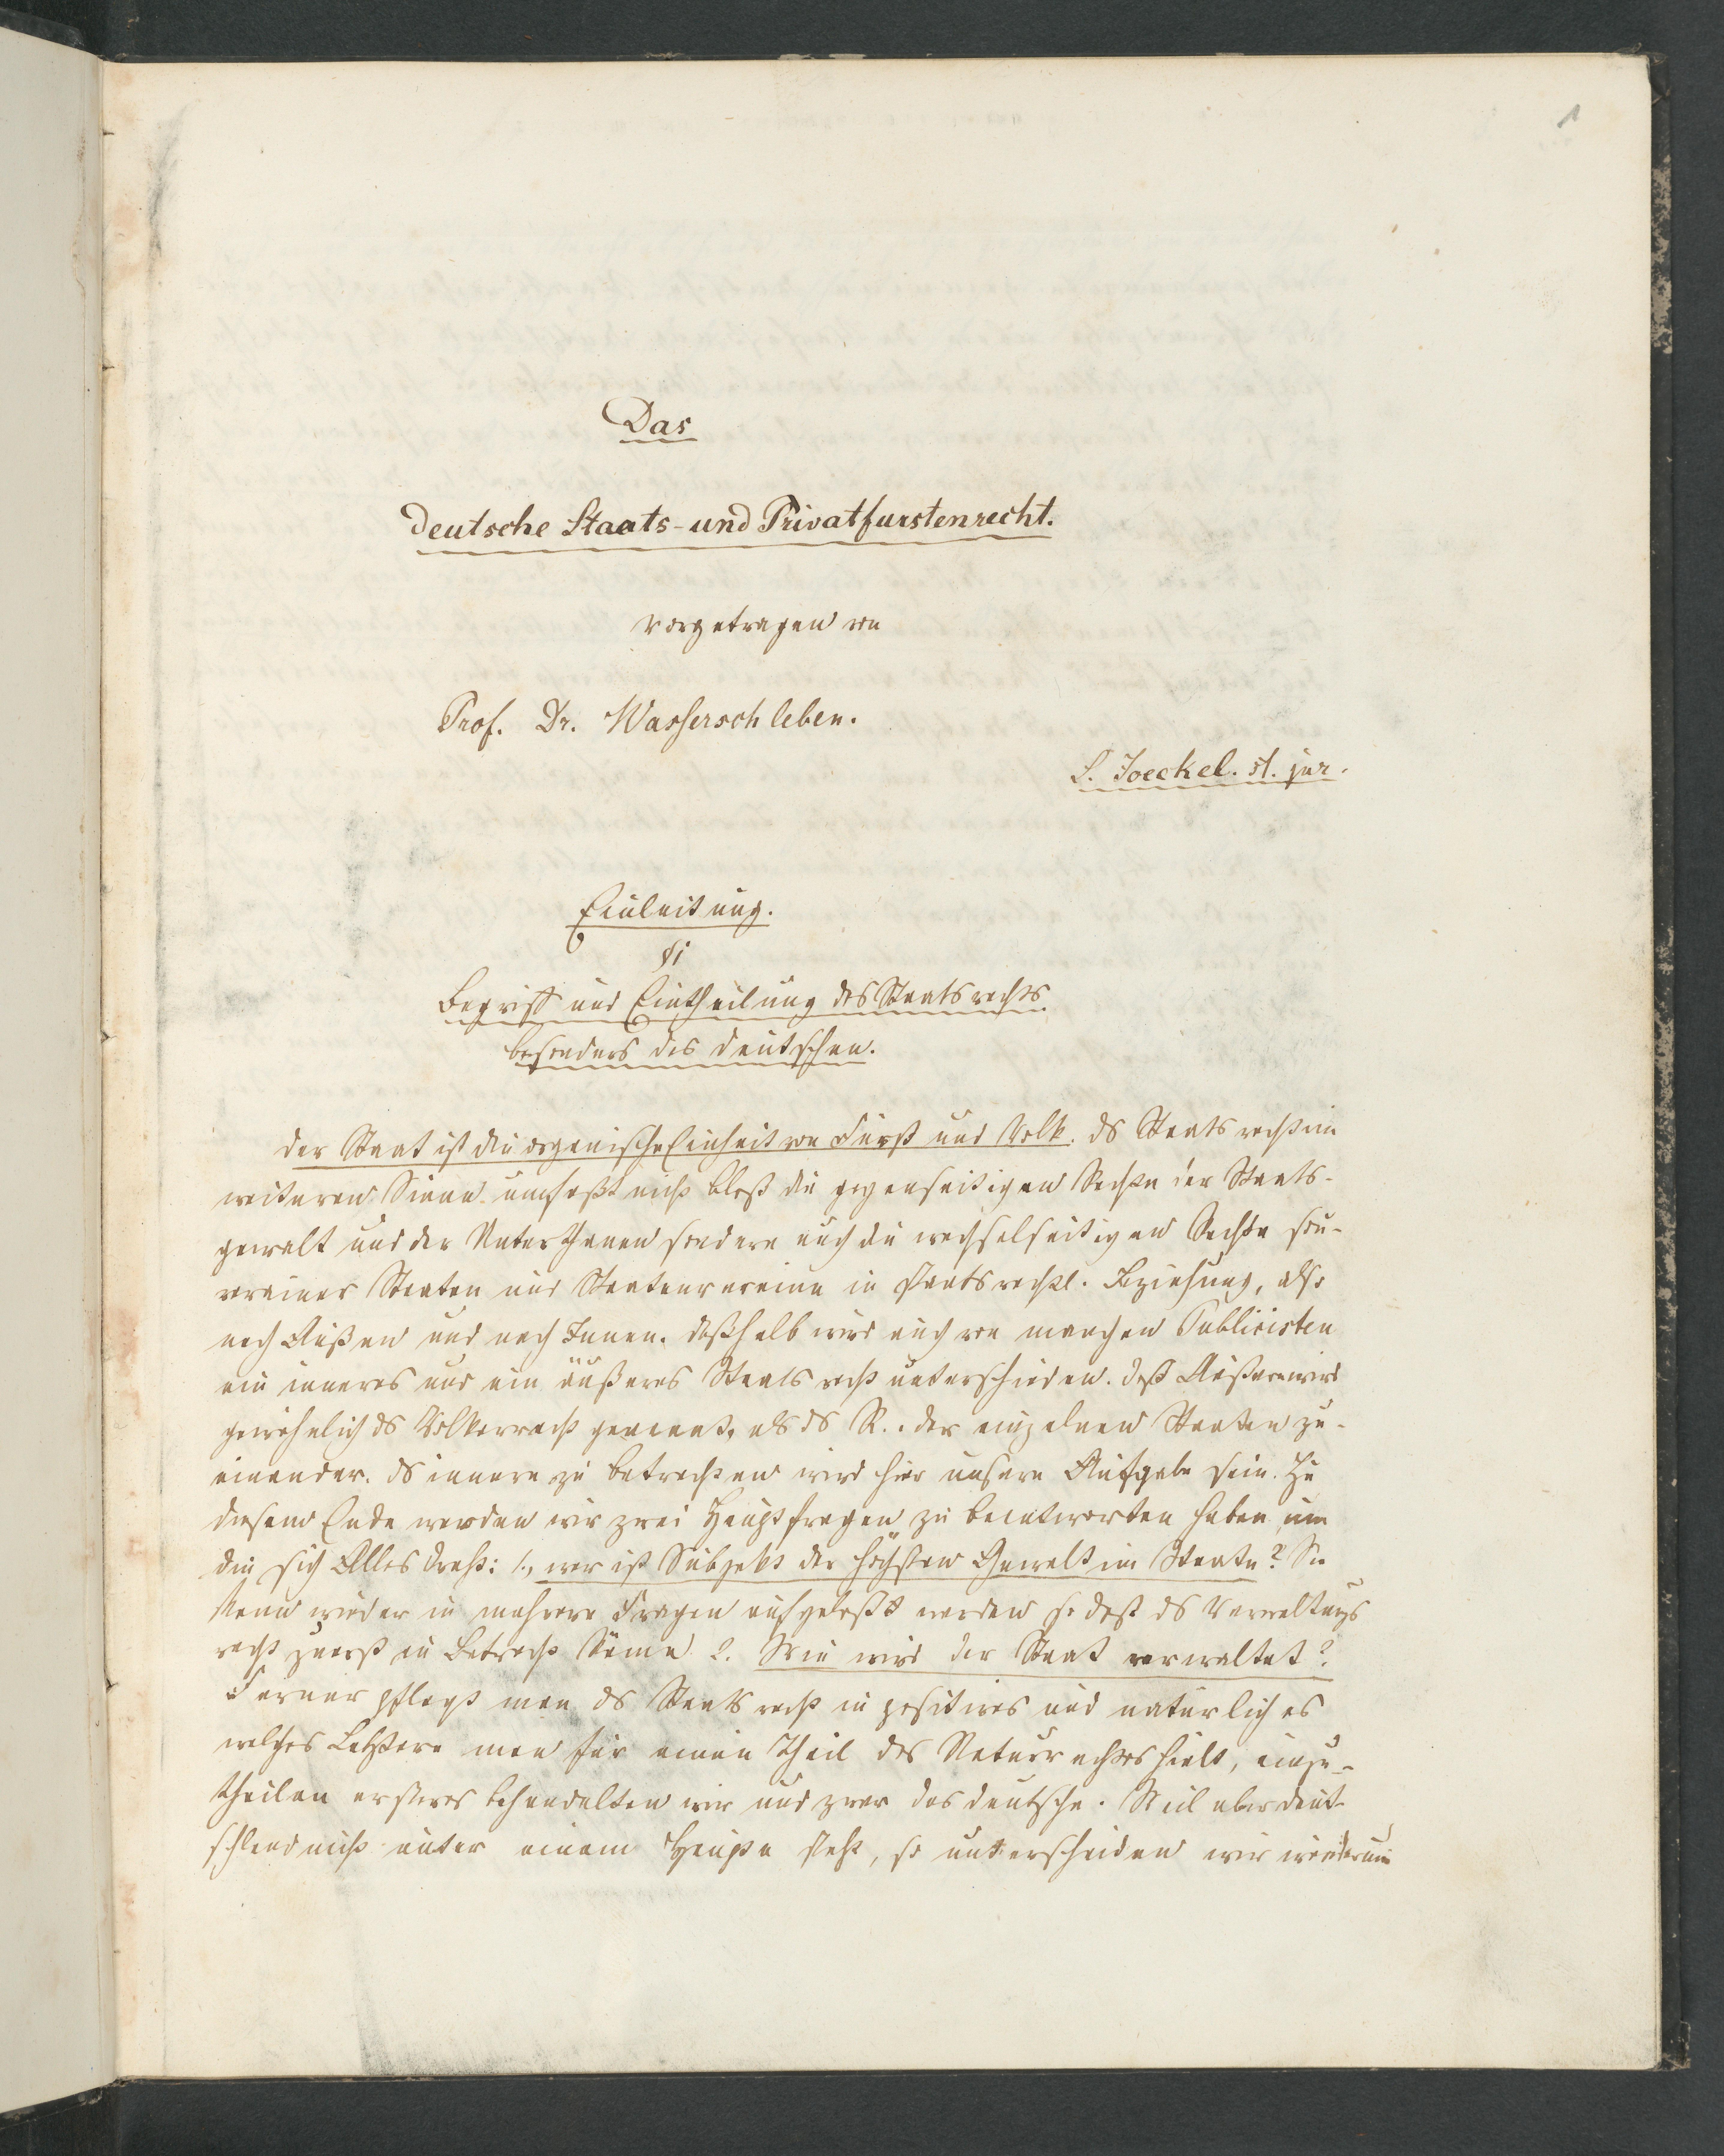 1
Das
deutsche Staats- und Privatfurstenrecht.
vorgetragen von
Prof. Dr. Wasserschleben.
L. Joeckel. st. jur.
Einleitung.
§1
Begriff und Eintheilung des Staatsrechts
besonders des deutschen.
Der Staat ist die organische Einheit von Fürst und Volk. Ds Staatsrecht im
weiteren Sinne umfaßt nicht bloß die gegenseitigen Rechte der Staats-
gewalt und der Unterthanen sondern auch die wechselseitigen Rechte sou-
verainer Staaten und Staatenvereine in staatsrechtl. Beziehung, also
nach Außen und nach Innen. Deßhalb wird auch von manchen Publicisten
ein inneres und ein äußeres Staatsrecht unterschieden. Deß Äußere wird
gewöhnlich ds Völkerrecht genannt, als ds R. der einzelnen Staaten zu-
einander. Ds innere zu betrachten wird hier unsere Aufgabe sein. Zu
diesem Ende werden wir zwei Hauptfragen zu beantworten haben, um
die sich Alles dreht: 1., wer ist Subjekt der höchsten Gewalt im Staate? Sie
kann wieder in mehrere Fragen aufgelößt werden so daß ds Verwaltungs
recht zuerst in Betracht käme 2. Wie wird der Staat verwaltet?
Ferner pflegt man ds Staatsrecht in positives und natürliches
welches Letztere man für einen Theil des Naturrechtes hielt, einzu-
theilen ersteres behandelten wir und zwar das deutsche. Weil aber deut-
schland nicht unter einem Haupte steht, so unterscheiden wir wiederum